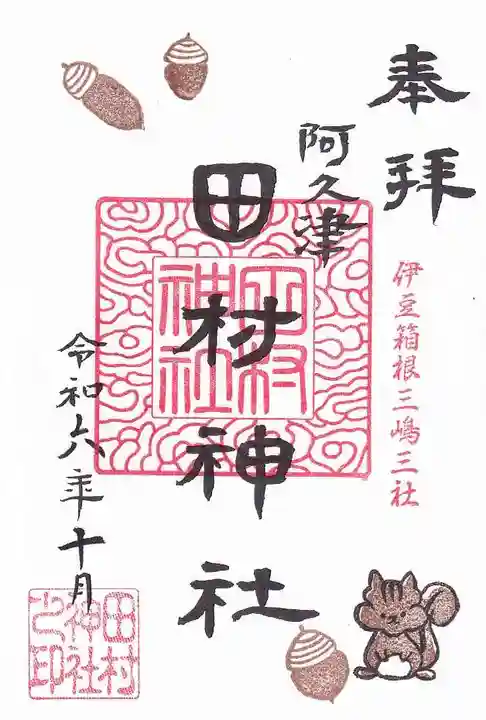 奉拝
伊豆箱根三嶋三社
阿久津
田村神社
田村神社
令和六年十月
田村神社之印